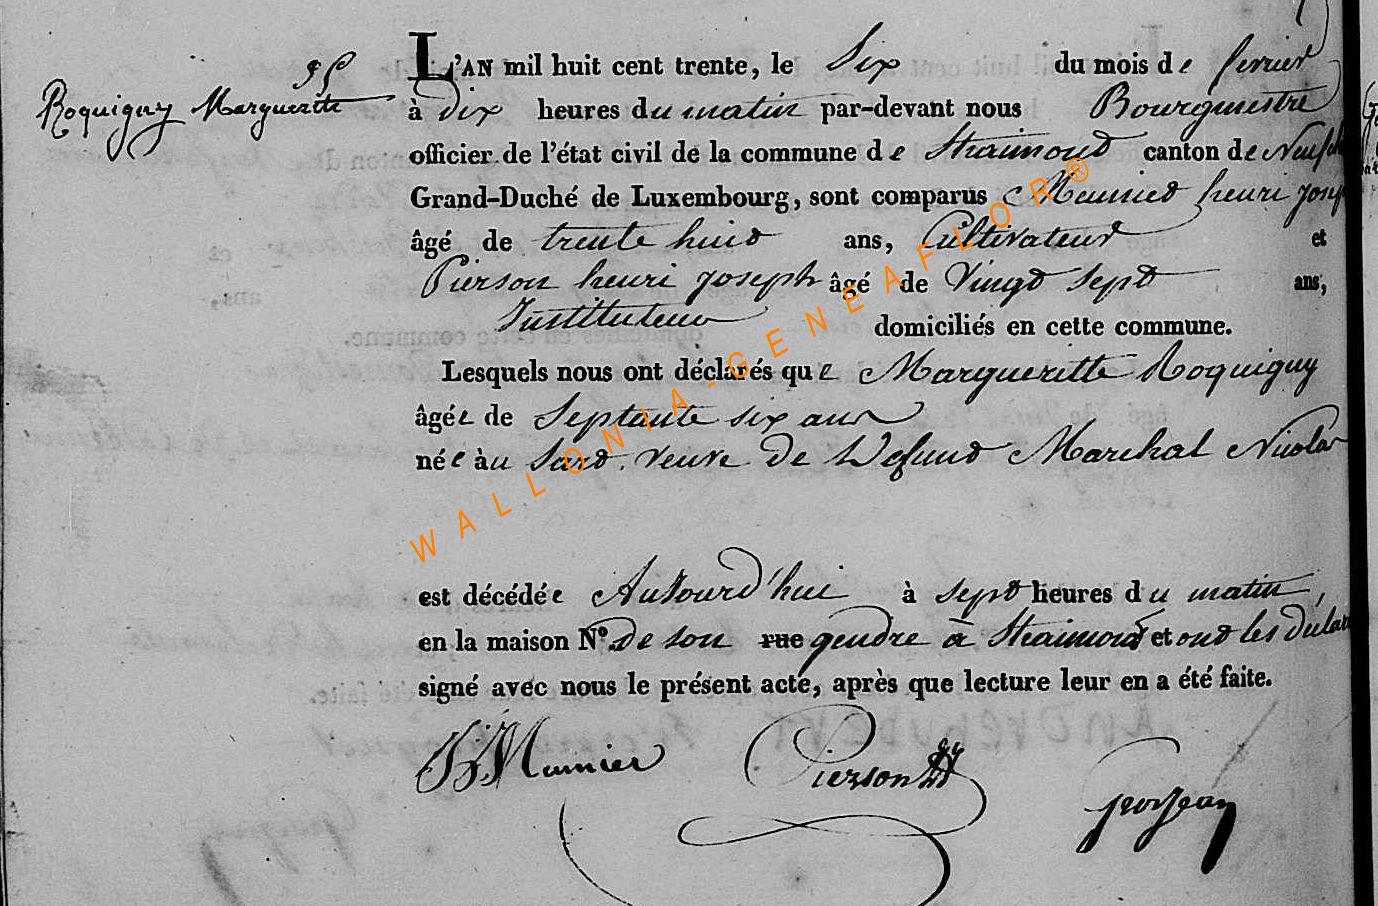 Roquigny Margueritte
L'AN mil huit cent trente, le Six du mois de fevrier
à Dix heures du matin par-devant nous Bourgmestre
officier de l'état civil de la commune de Straimond canton de Neufch
Grand-Duché de Luxembourg, sont comparus Meunier henri Josep
âgé de trente huit ans, Cultivateur et
Pierson henri joseph âgé de Vingt sept ans,
Instituteur domiciliés en cette commune.
Lesquels nous ont déclarés que Marguerite Roquigny
âgée de Septante six ans
née au Sart. veuve de Defunt Marchal Nicolas
est décédée Aujourd'hui à sept heures du matin,
en la maison N° de son rue gendre à Straimont et ont les Déclar
signé avec nous le présent acte, après que lecture leur en a été faite.
Pierson
WALLONIA-GENEAFLOR®